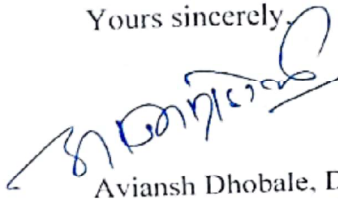 Yours sincerely,
Aviansh Dhobale, D